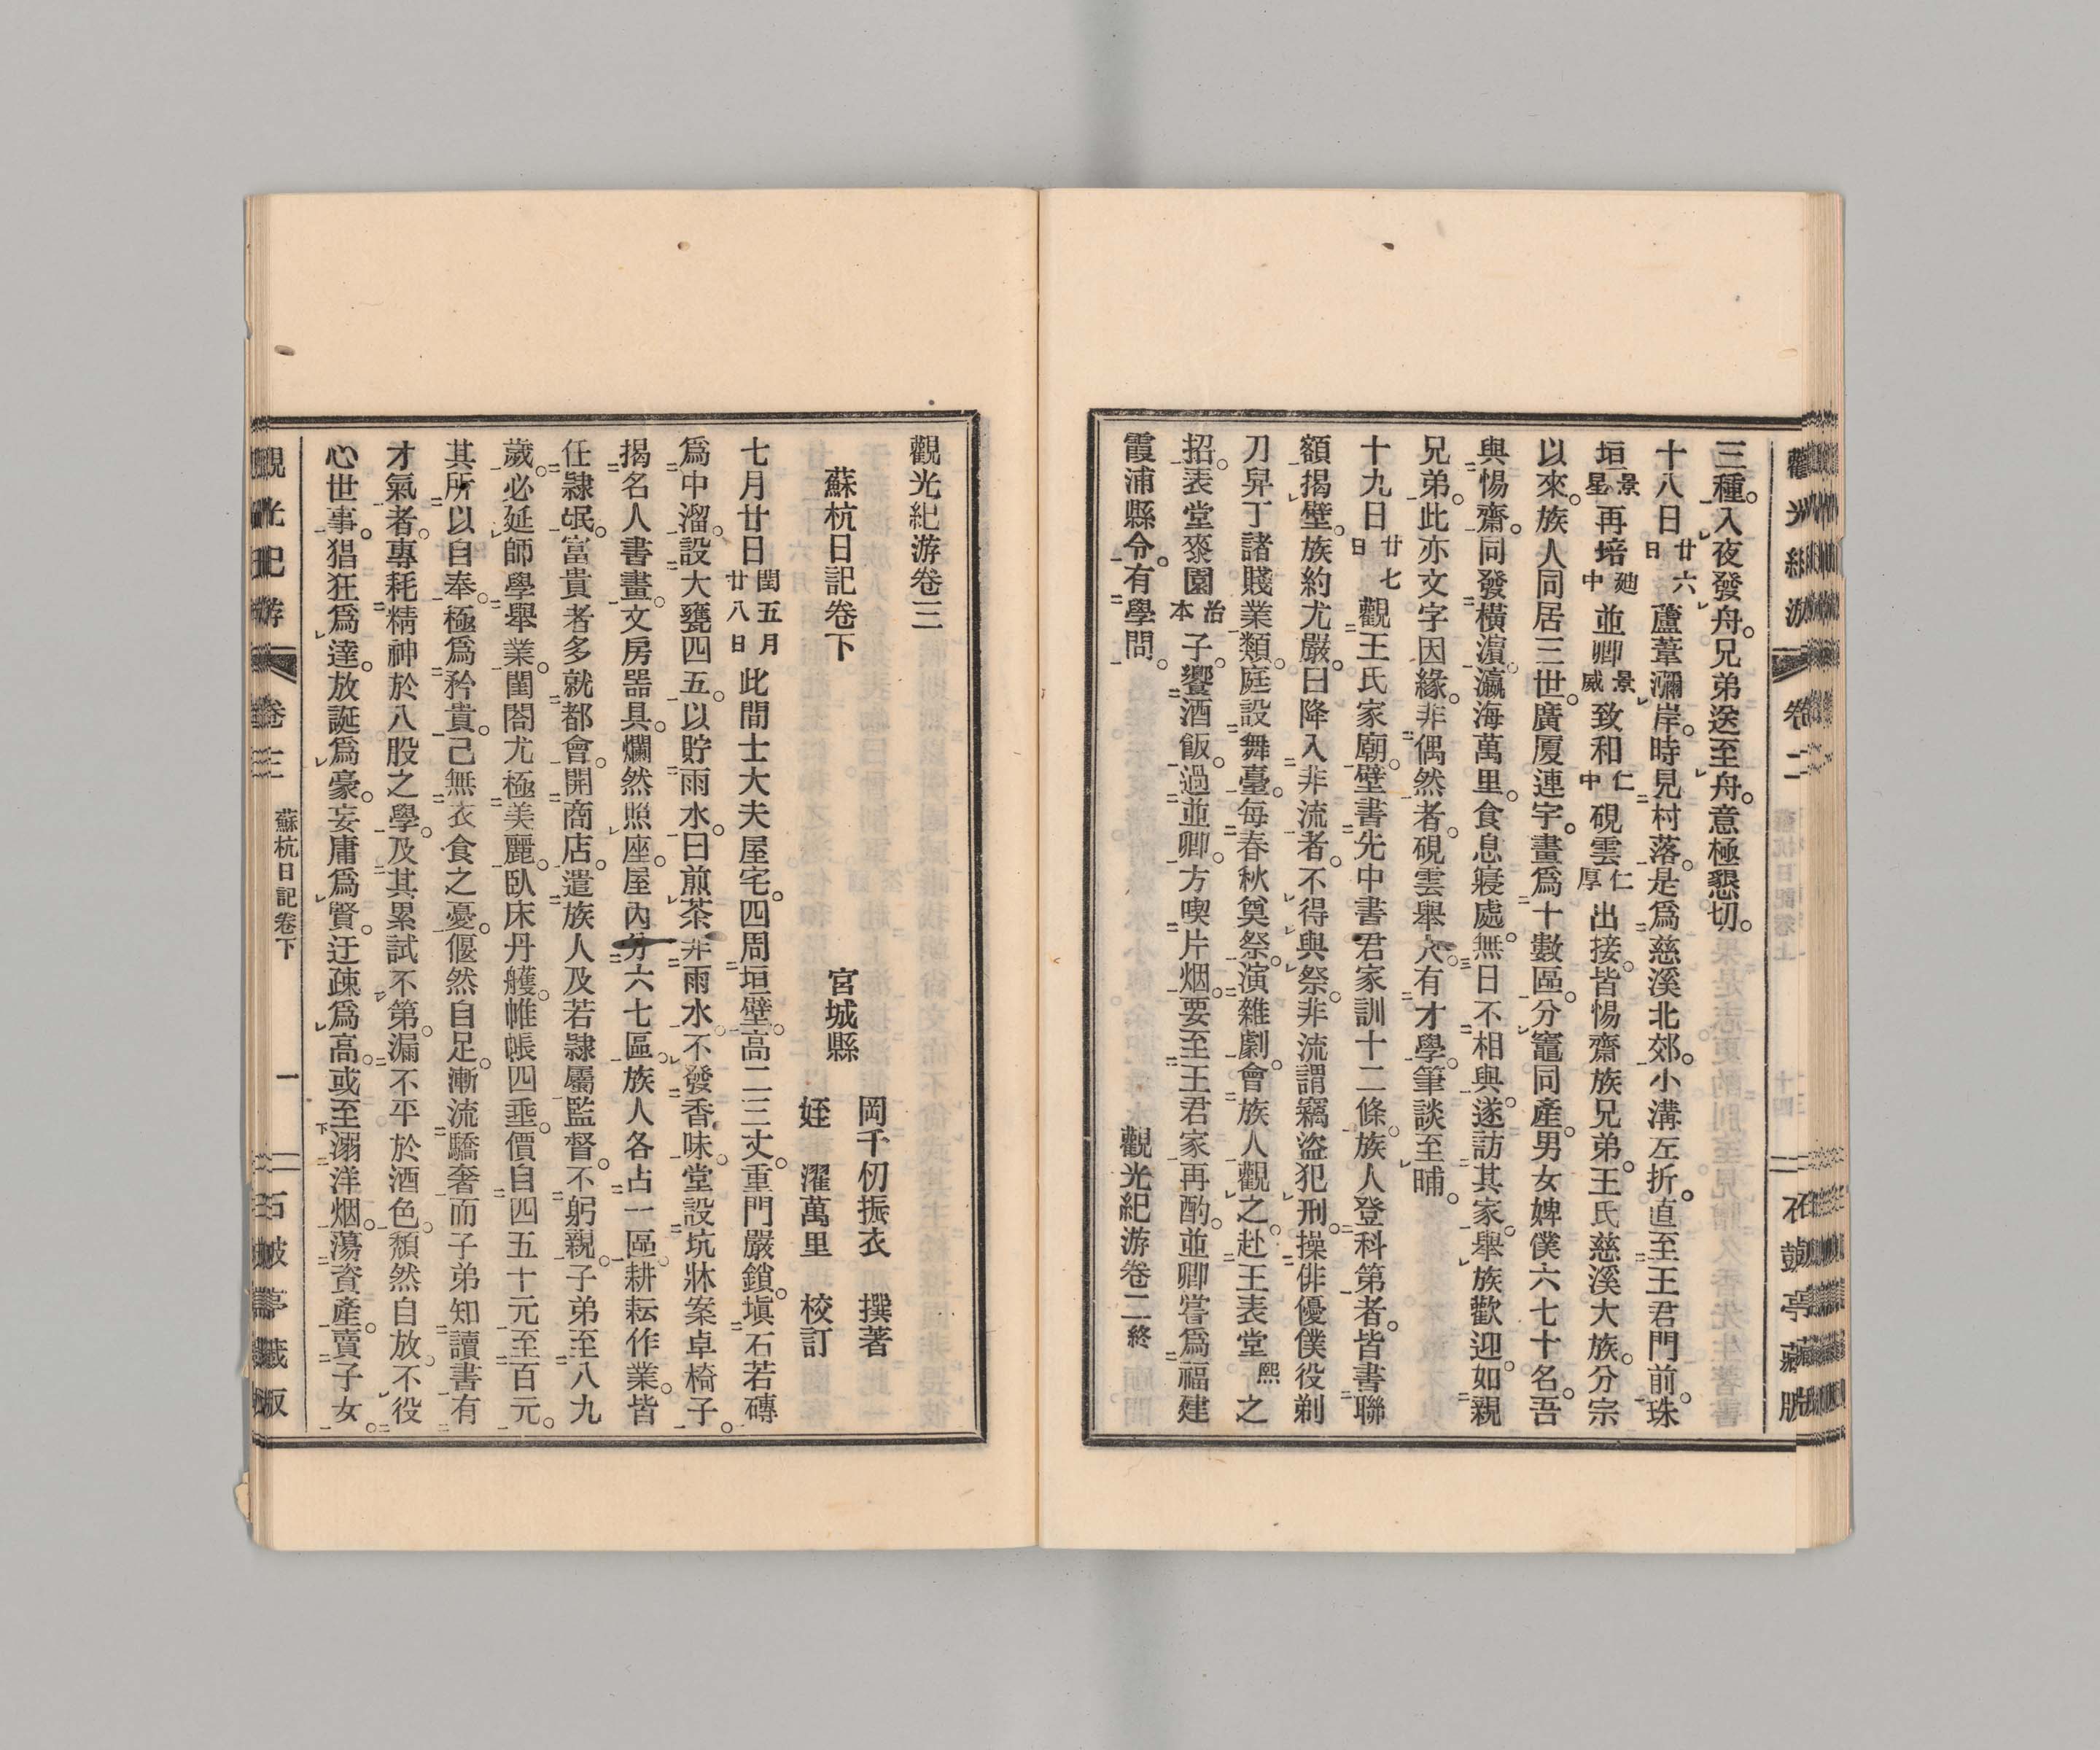 三種。入夜發舟。兄弟送至舟。意極懇切。
十八日廿六日蘆葦瀰岸。時見村落。是爲慈溪北郊。小溝左折。直至王君門前。珠
垣景星再培廸中並卿景威致和仁中硯雲仁厚出接。皆惕齋族兄弟。王氏慈溪大族。分宗
以來。族人同居三世。廣厦連宇。畫爲十數區。分竈同產。男女婢僕六七十名。吾
與惕齋。同發橫濵。瀛海萬里。食息寢處。無日不相與。遂訪其家。舉族歡迎。如親
兄弟。此亦文字因緣。非偶然者。硯雲舉人。有才學。筆談至晡。
十九日廿七日觀王氏家廟。壁書先中書君家訓十二條。族人登科第者。皆書聯
額揭壁。族約尤嚴。曰降入非流者。不得與祭。非流謂竊盜犯刑。操俳優僕役剃
刀舁丁諸賤業類。庭設舞臺。每春秋奠祭。演雜劇。會族人觀之。赴王表堂熙之
招。表堂蓤園治本子。饗酒飯。過並卿。方喫片烟。要至王君家再酌。並卿嘗爲福建
霞浦縣令。有學問。
觀光紀游卷二終
觀光紀游
卷二
石鼓亭藏版
觀光紀游卷三
蘇杭日記卷下
宮城縣
岡千仞振衣 撰著
姪 濯萬里 校訂
七月廿日閏五月廿八日此間士大夫屋宅。四周垣壁。高二三丈。重門嚴鎖。塡石若磚
爲中溜。設大甕四五。以貯雨水。曰煎茶非雨水。不發香味。堂設坑牀案卓椅子。
揭名人書畫。文房器具。爛然照座。屋內分六七區。族人各占一區。耕耘作業。皆
任隸氓。富貴者多就都會。開商店。遣族人及若隸屬監督。不躬親。子弟至八九
歲。必延師學舉業。閨閤尤極美麗。臥床丹艧。帷帳四垂。價自四五十元至百元。
其所以自奉。極爲矜貴。己無衣食之憂。偃然自足。漸流驕奢。而子弟知讀書有
才氣者。專耗精神於八股之學。及其累試不第。漏不平於酒色。頹然自放。不役
心世事。猖狂爲達。放誕爲豪。妄庸爲賢。迂疎爲高。或至溺洋烟。蕩資產。賣子女。
觀光紀游
卷三
蘇杭日記卷下
一
石鼓亭藏版